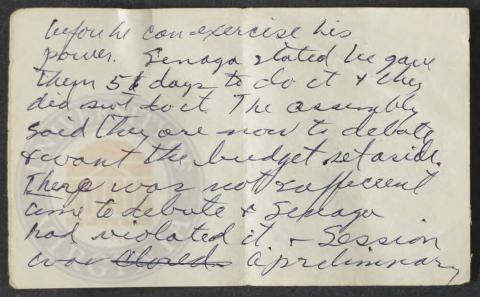 before he can exercise his
power. Senaga stated he gave
them 5½ days to do it & they
did not do it. The assembly
said they are now to debate
& want the budget set aside.
There was not sufficient
time to debate & Senaga
had violated it & Session
was closed a preliminary